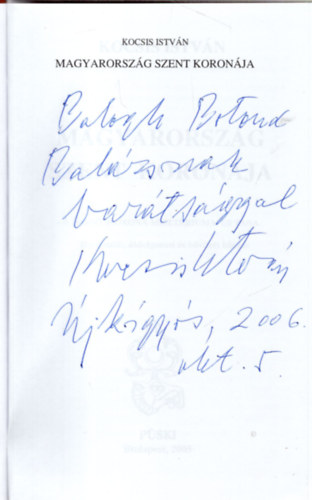 KOCSIS ISTVÁN
MAGYARORSZÁG SZENT KORONÁJA
Balogh Botond
Balázsnak
barátsággal
Kocsis István
Újkígyós, 2006.
okt. 5.
PÜSKI
Budapest,